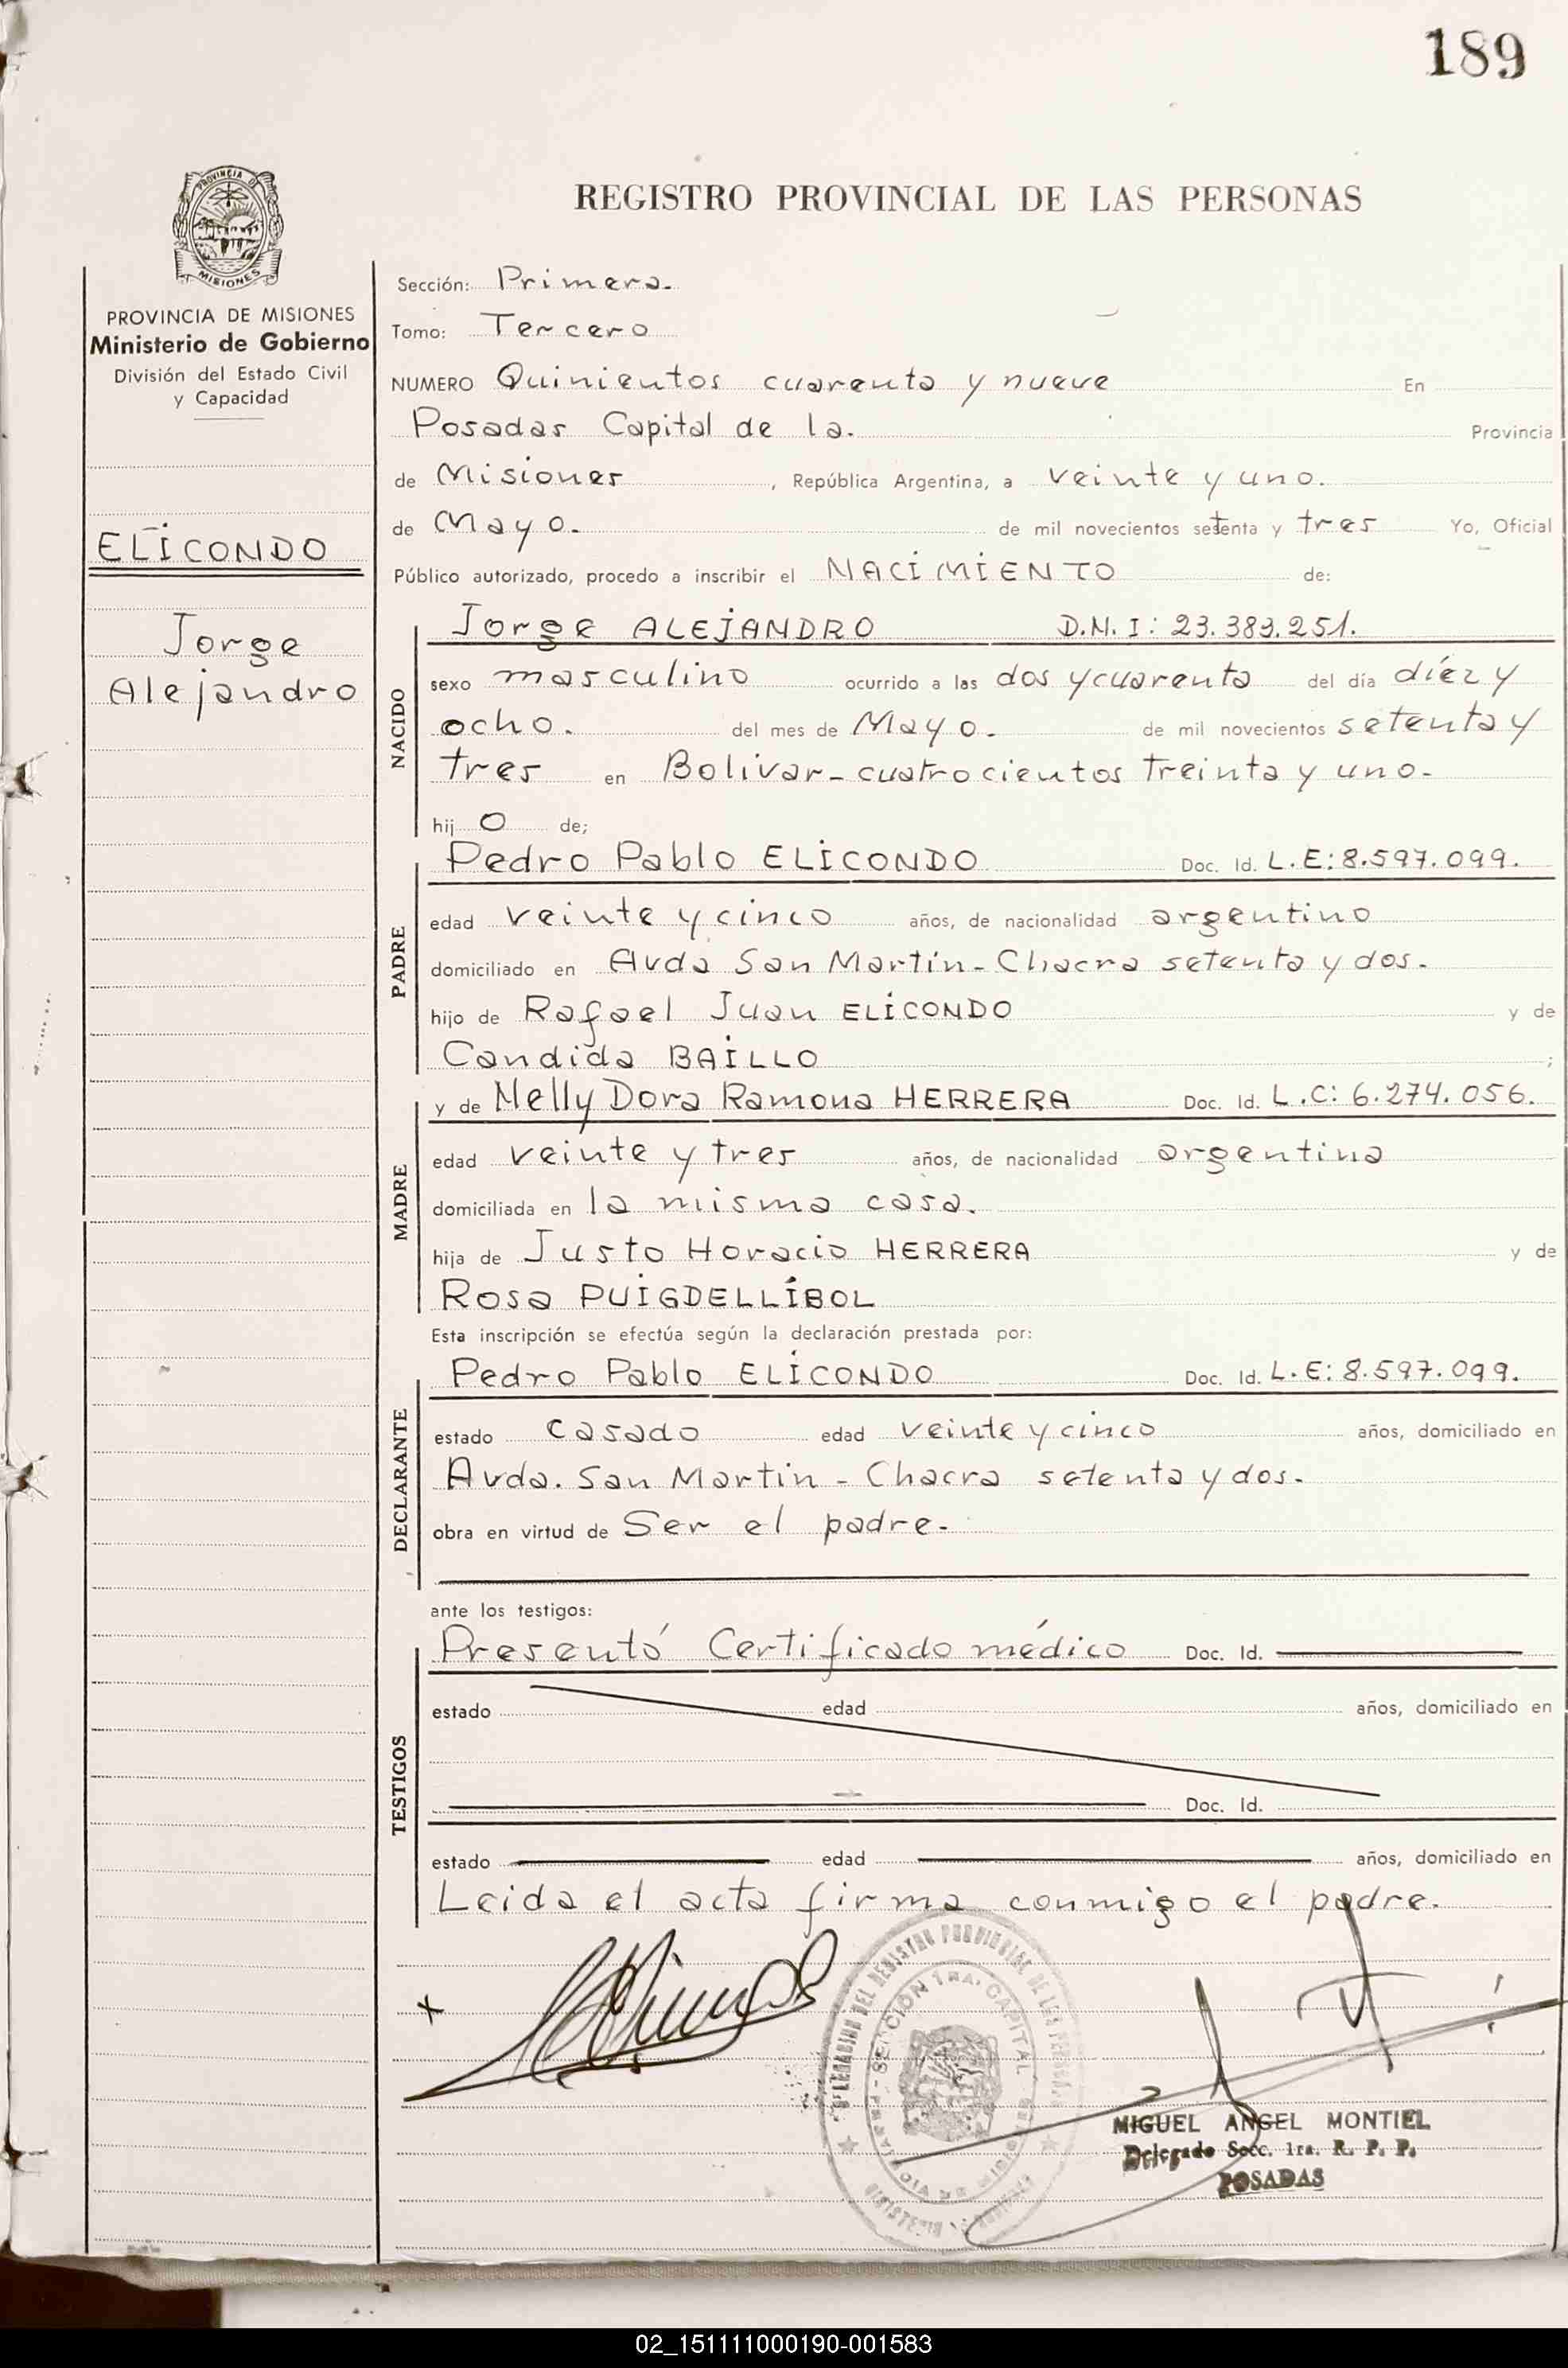 189
PROVINCIA DE
MISIONES
REGISTRO PROVINCIAL DE LAS PERSONAS
PROVINCIA DE MISIONES
Ministerio de Gobierno
División del Estado Civil
y Capacidad
ELICONDO
Jorge
Alejandro
Sección: Primera.
Tomo: Tercero
NUMERO Quinientos cuarenta y nueve En
Posadas Capital de la. Provincia
de Misiones, República Argentina, a veinte y uno.
de Mayo. de mil novecientos setenta y tres Yo, Oficial
Público autorizado, procedo a inscribir el NACIMIENTO de:
NACIDO
Jorge ALEJANDRO D.N.I: 23.383.251.
sexo masculino ocurrido a las dos y cuarenta del día díez y
ocho. del mes de Mayo. de mil novecientos setenta y
tres en Bolivar - cuatrocientos treinta y uno.
hij o de;
PADRE
Pedro Pablo ELICONDO Doc. Id. L.E: 8.597.099.
edad veinte y cinco años, de nacionalidad argentino
domiciliado en Avda San Martín - Chacra setenta y dos.
hijo de Rafael Juan ELICONDO y de
Candida BAILLO ;
MADRE
y de Nelly Dora Ramona HERRERA Doc. Id. L.C: 6.274.056.
edad veinte y tres años, de nacionalidad argentina
domiciliada en la misma casa.
hija de Justo Horacio HERRERA y de
Rosa PUIGDELLÍBOL
Esta inscripción se efectúa según la declaración prestada por:
DECLARANTE
Pedro Pablo ELICONDO Doc. Id. L.E: 8.597.099.
estado casado edad veinte y cinco años, domiciliado en
Avda. San Martin - Chacra setenta y dos.
obra en virtud de Ser el padre.
ante los testigos:
TESTIGOS
Presentó Certificado médico Doc. Id.
estado edad años, domiciliado en
Doc. Id.
estado edad años, domiciliado en
Leida el acta firma conmigo el padre.
x
DEL REGISTRO PROVINCIAL DE LAS
SECCIÓN 1RA. CAPITAL
MIGUEL ANGEL MONTIEL
Delegado Secc. 1ra. R. P. P.
POSADAS
02_151111000190-001583